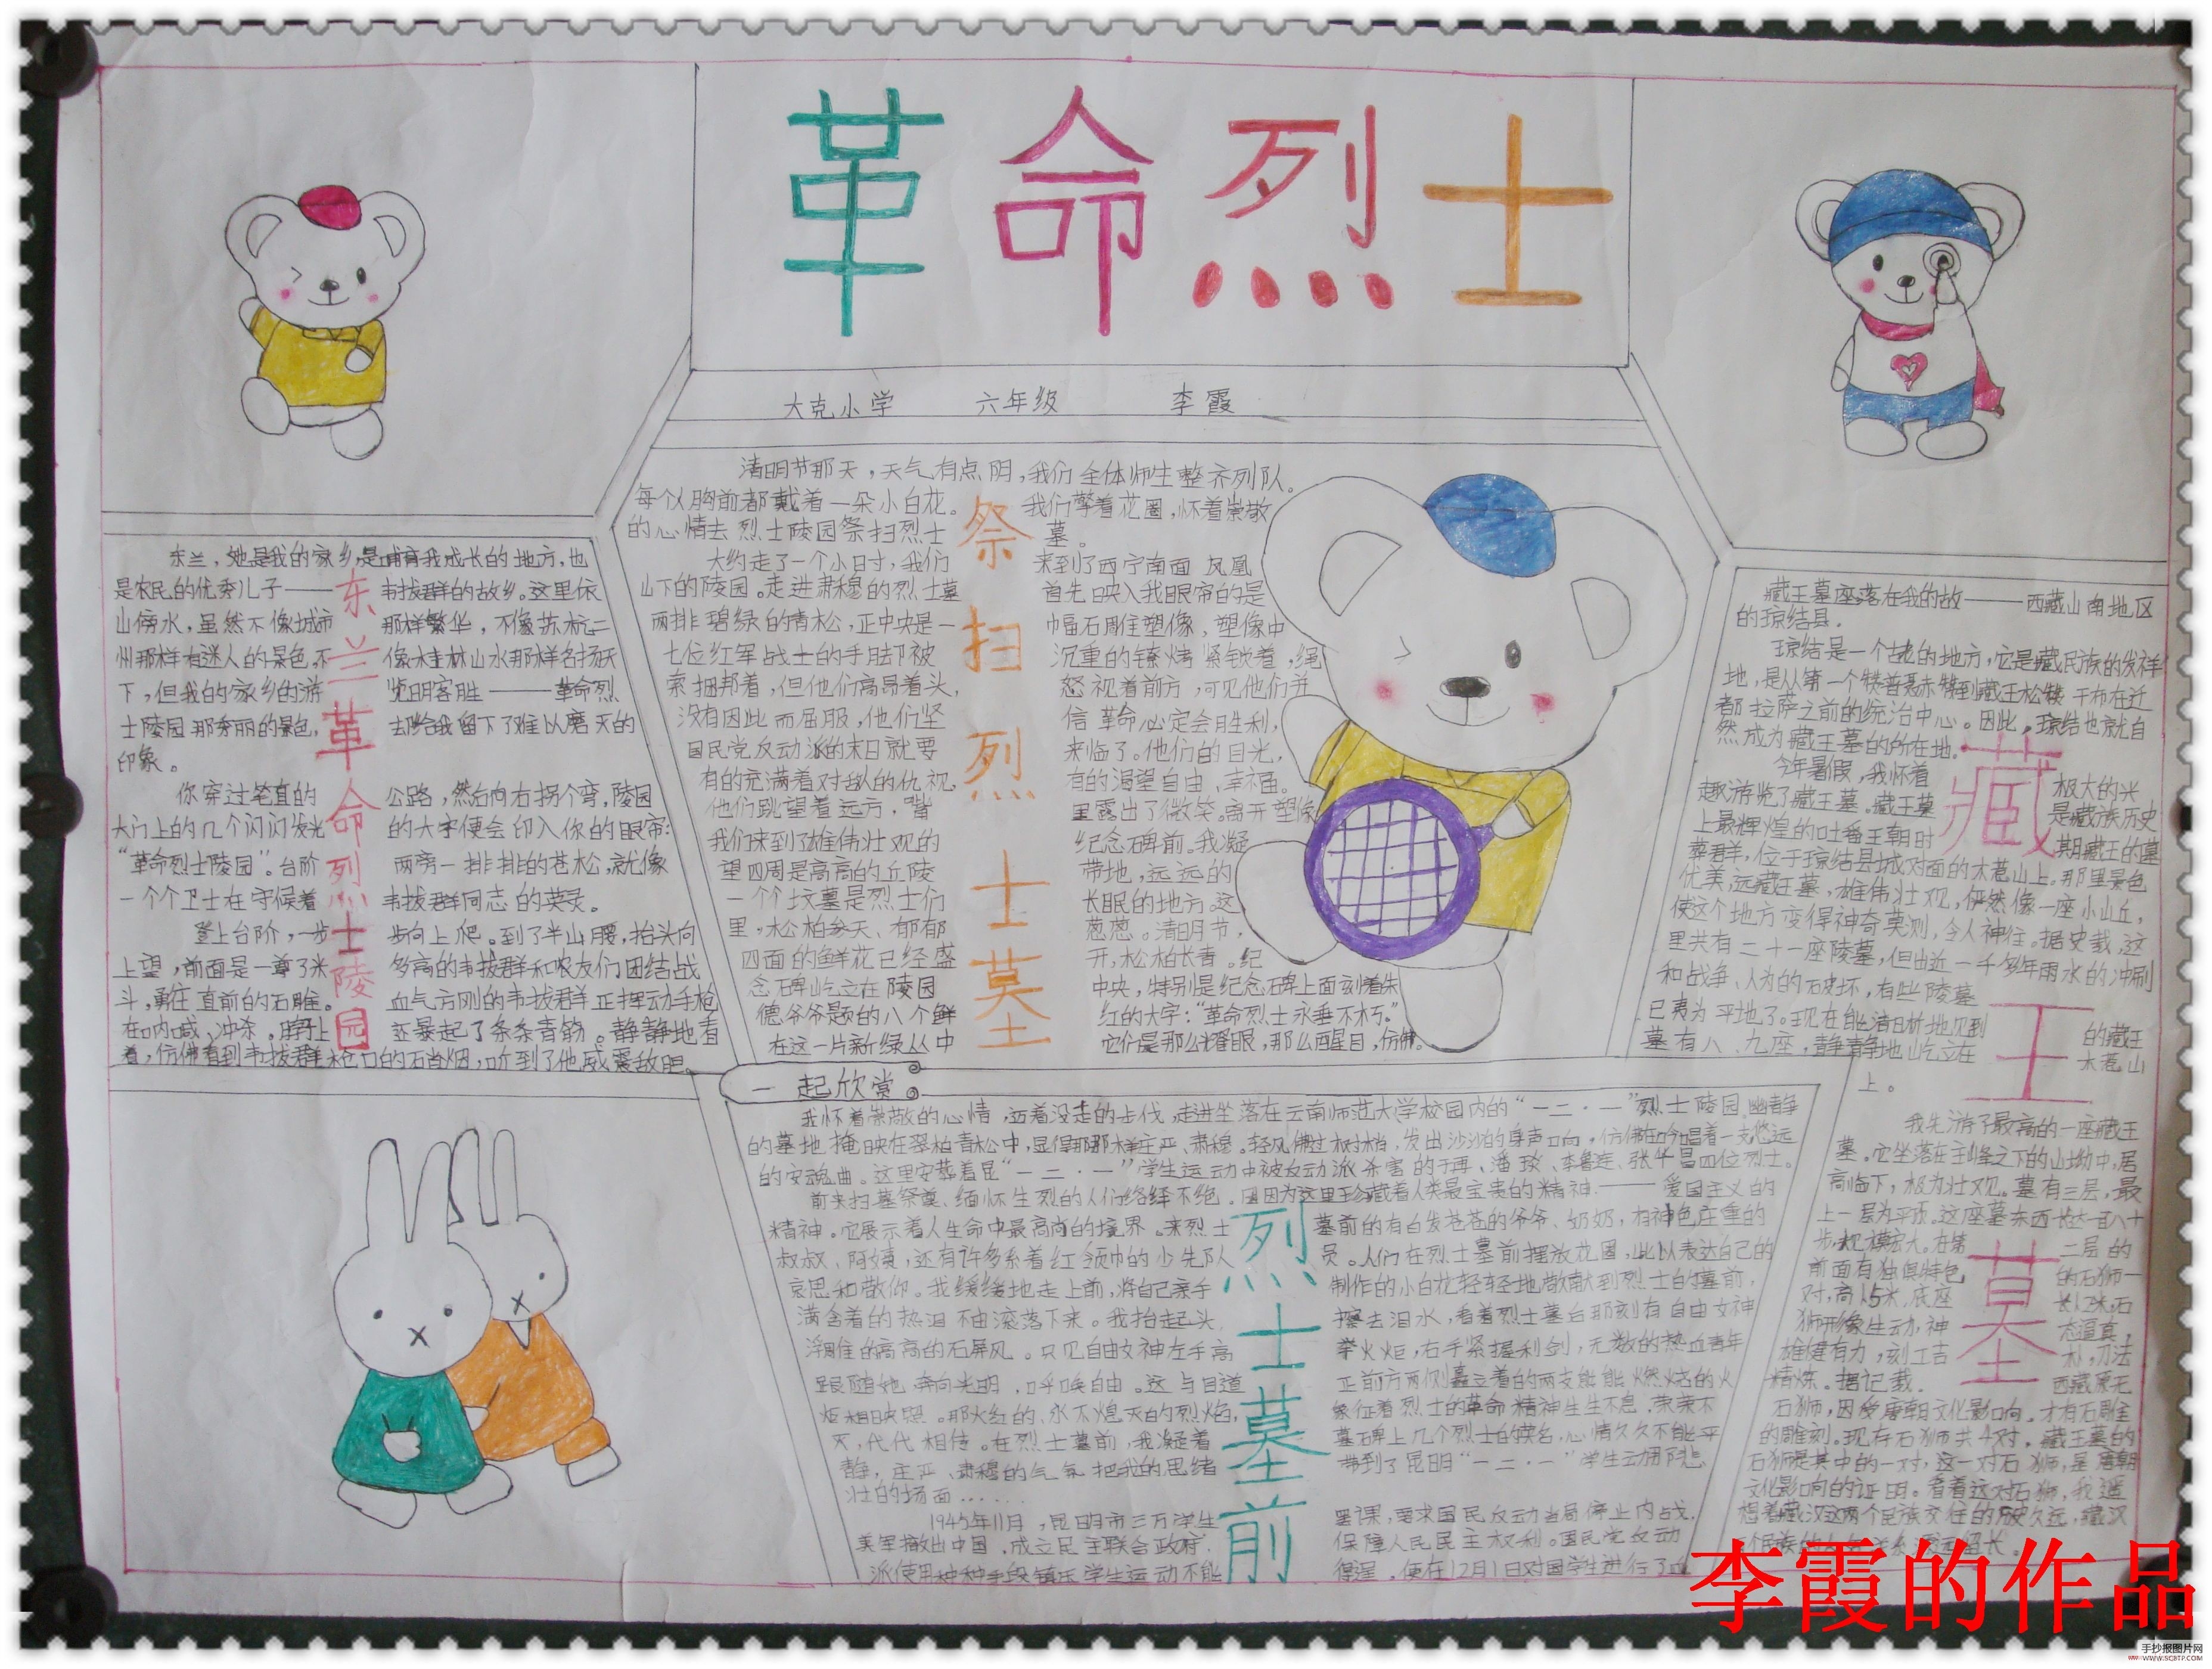 革命烈士
大克小学 六年级 李霞
东兰革命烈士陵园
东兰，她是我的家乡，是哺育我成长的地方，也
是农民的优秀儿子——韦拔群的故乡。这里依
山傍水，虽然不像城市那样繁华，不像苏杭二
州那样有迷人的景色，不像桂林山水那样名扬天
下，但我的家乡的游览明客胜——革命烈
士陵园那秀丽的景色，却给我留下了难以磨灭的
印象。
你穿过笔直的公路，然后向右拐个弯，陵园
大门上的几个闪闪发光的大字便会印入你的眼帘：
“革命烈士陵园”。台阶两旁一排排的苍松，就像
一个个卫士在守候着韦拔群同志的英灵。
登上台阶，一步步向上爬。到了半山腰，抬头向
上望，前面是一尊了米多高的韦拔群和农友们团结战
斗，勇往直前的石雕。血气方刚的韦拔群正挥动手枪
在呐喊、冲杀。脖子上亚暴起了条条青筋。静静地看
着，仿佛看到韦拔群枪口的石肖烟，听到了他威震敌胆
祭扫烈士墓
清明节那天，天气有点阴，我们全体师生整齐列队。
每个人胸前都戴着一朵小白花。我们擎着花圈，怀着崇敬
的心情去烈士陵园祭扫烈士墓。
大约走了一个小时，我们来到了西宁南面凤凰
山下的陵园。走进肃穆的烈士墓首先映入我眼帘的是
两排碧绿的青松，正中央是一幅石雕塑像，塑像中
七位红军战士的手脚被沉重的镣铐紧锁着，绳
索捆邦着，但他们高昂着头，怒视着前方，可见他们并
没有因此而屈服，他们坚信革命必定会胜利，
国民党反动派的末日就要来临了。他们的目光，
有的充满着对敌人的仇视有的渴望自由、幸福。
他们眺望着远方，嘴里露出了微笑。离开塑像
我们来到了雄伟壮观的纪念碑前。我凝
望四周是高高的丘陵带地，远远的
一个个坟墓是烈士们长眠的地方。这
里，松柏参天、郁郁葱葱。清明节，
四面的鲜花已经盛开，松柏长青。纪
念碑屹立在陵园中央，特别是纪念碑上面刻着朱
德爷爷题的八个鲜红的大字：“革命烈士永垂不朽。”
在这一片新绿丛中它们是那么耀眼，那么醒目，仿佛。
藏王墓
藏王墓座落在我的故——西藏山南地区
的琼结县。
琼结是一个古老的地方，它是藏民族的发祥
地，是从第一个赞普聂赤赞到藏王松赞干布在迁
都拉萨之前的统治中心。因此，琼结也就自
然成为藏王墓的所在地。
今年暑假，我怀着极大的兴
趣游览了藏王墓。藏王墓是藏族历史
上最辉煌的吐番王朝时期藏王的墓
葬群，位于琼结县城对面的木惹山上。那里景色
优美，远藏王墓，雄伟壮观，俨然像一座小山丘，
使这个地方变得神奇莫测，令人神往。据史载，这
里共有二十一座陵墓，但由近一千多年雨水的冲刷
和战争、人为的破坏，有些陵墓
已夷为平地了。现在能清晰地见到的藏王
墓有八、九座，静静地屹立在木惹山
上。
我先游了最高的一座藏王
墓。它坐落在主峰之下的山坳中，居
高临下，极为壮观。墓有三层，最
上一层为平顶。这座墓东西长达一百八十
步，规模宏大。在第二层的
前面有独俱特色的石狮一
对，高1.5米，底座长1.2米，石
狮形像生动，神态逼真，
雄健有力，刻工古朴，刀法
精炼。据记载，西藏原无
石狮，因受唐朝文化影响。才有石雕
的雕刻。现存石狮共4对，藏王墓的
石狮是其中的一对，这一对石狮，是唐朝
文化影响的证明。看着这对石狮，我遥
想着藏汉这两个民族交往的历史久远，藏汉
一起欣赏
烈士墓前
我怀着崇敬的心情，迈着没走的步伐，走进坐落在云南师范大学校园内的“一二·一”烈士陵园。幽静
的墓地掩映在翠柏青松中，显得那那样庄严、肃穆。轻风佛过树梢，发出沙沙的身声响，仿佛在吟唱着一支悠远
的安魂曲。这里安葬着昆“一二·一”学生运动中被反动派杀害的于再、潘琰、李鲁连、张华昌四位烈士。
前来扫墓祭奠、缅怀生烈的人们络绎不绝。因因为这里珍藏着人类最宝贵的精神——爱国主义的
精神。它展示着人生命中最高尚的境界。来烈士墓前的有白发苍苍的爷爷、奶奶，有神色庄重的
叔叔、阿姨，还有许多系着红领巾的少先队员。人们在烈士墓前摆放花圈，此以表达自己的
哀思和敬仰。我缓缓地走上前，将自己亲手制作的小白花轻轻地敬献到烈士的墓前，
满含着的热泪不由滚落下来。我抬起头，擦去泪水，看着烈士墓后那刻有自由女神
浮雕的高高的石屏风。只见自由女神左手高举火炬，右手紧握利剑，无数的热血青年
跟随她奔向光明，呼唤自由。这与目道正前方两侧矗立着的两支能能燃烧的火
炬相映照。那火红的、永不熄灭的烈焰，象征着烈士的革命精神生生不息，荣荣不
灭，代代相传。在烈士墓前，我凝着墓碑上几个烈士的英名，心情久久不能平
静，庄严、肃穆的气氛把我的思绪带到了昆明“一二·一”学生运动那悲
壮的场面……
1945年11月，昆明市三万学生罢课，要求国民反动当局停止内战，
美军撤出中国，成立民主联合政府，保障人民民主权利。国民党反动
派使用种种手段镇压学生运动不能得逞，便在12月1日对国学生进行了血
李霞的作品
手抄报图片网
WWW.SCBTP.COM